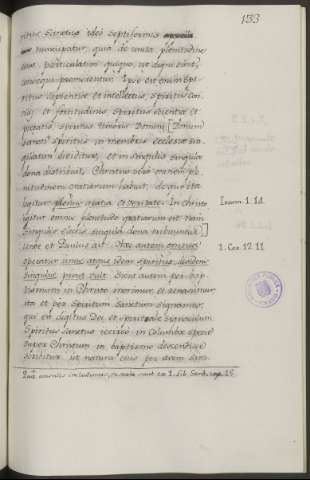 133
ritus Sanctus ideo septiformis
nuncupatur, quia de unita plenitudine
eius particulatim quique, ut digni sint,
consequi promerentur. Ipse est enim Spi-
ritus sapientiæ et intellectus, spiritus con-
silii et fortitudinis, spiritus scientiæ et
pietatis, spiritus timoris Domini. [Donum
sancti spiritus in membris ecclesiæ sin-
gillatim dividitur, et in singulis singula
dona distribuit. Christus vero omnem ple-
nitudinem gratiarum habuit, de quo ita
legitur plenus gratia et veritate. In Christo
igitur omnis plenitudo gratiarum est nam
singulis electis singula dona tribuuntur]]
Unde et Paulus ait. Hæc autem omnia
operatur unus atque idem spiritus dividens
singulis prout vult. Sicut autem per bap-
tismum in Christo morimur, et renascimur
ita et per Spiritum Sanctum signamur,
qui est digitus Dei et spirituale signaculum.
Spiritus sanctus
super Christum in baptismo descendisse
scribitur, ut natura eius per avem
Ioann. 1. 1d.
1. Cor. 12 11
Quæ uncinis includuntur,